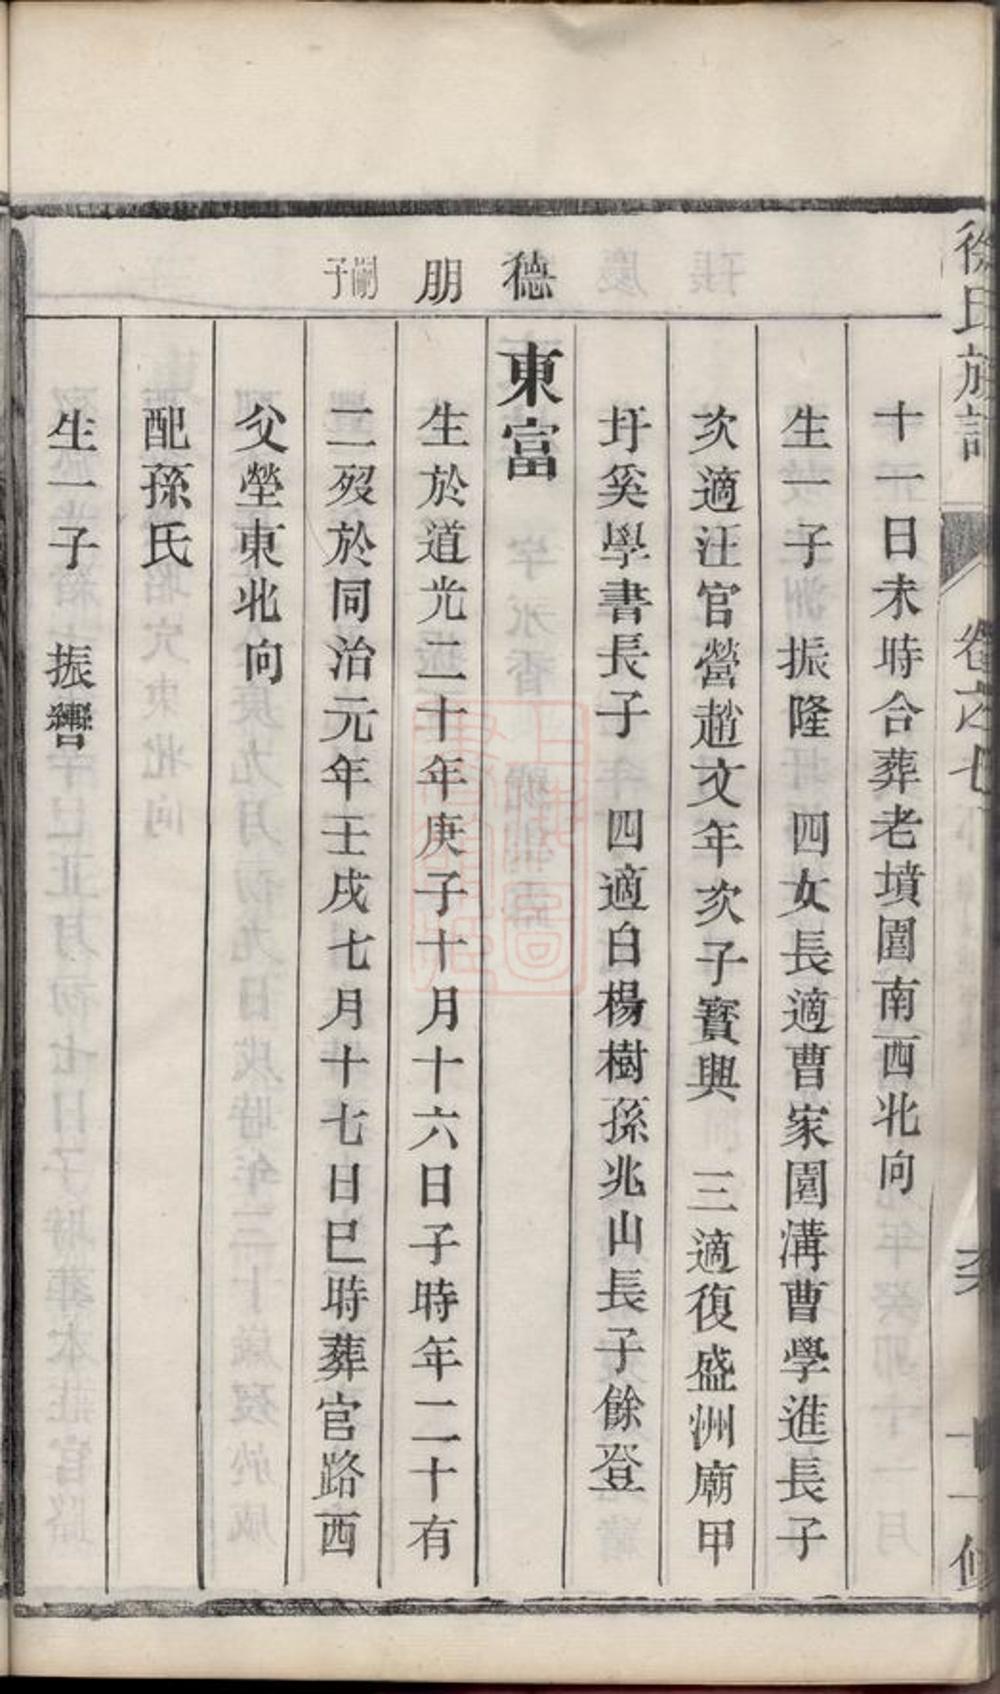 徐氏族譜 卷之七
十一日未時合葬老墳園南酉北向
生一子 振隆 四女長適曹家園溝曹學進長子
次適汪官營趙文年次子寶興 三適復盛洲廟甲
圩奚學書長子 四適白楊樹孫兆山長子餘登
德朋嗣子
東富
生於道光二十年庚子十月十六日子時年二十有
二歿於同治元年壬戌七月十七日巳時葬官路西
父塋東北向
配孫氏
生一子 振響